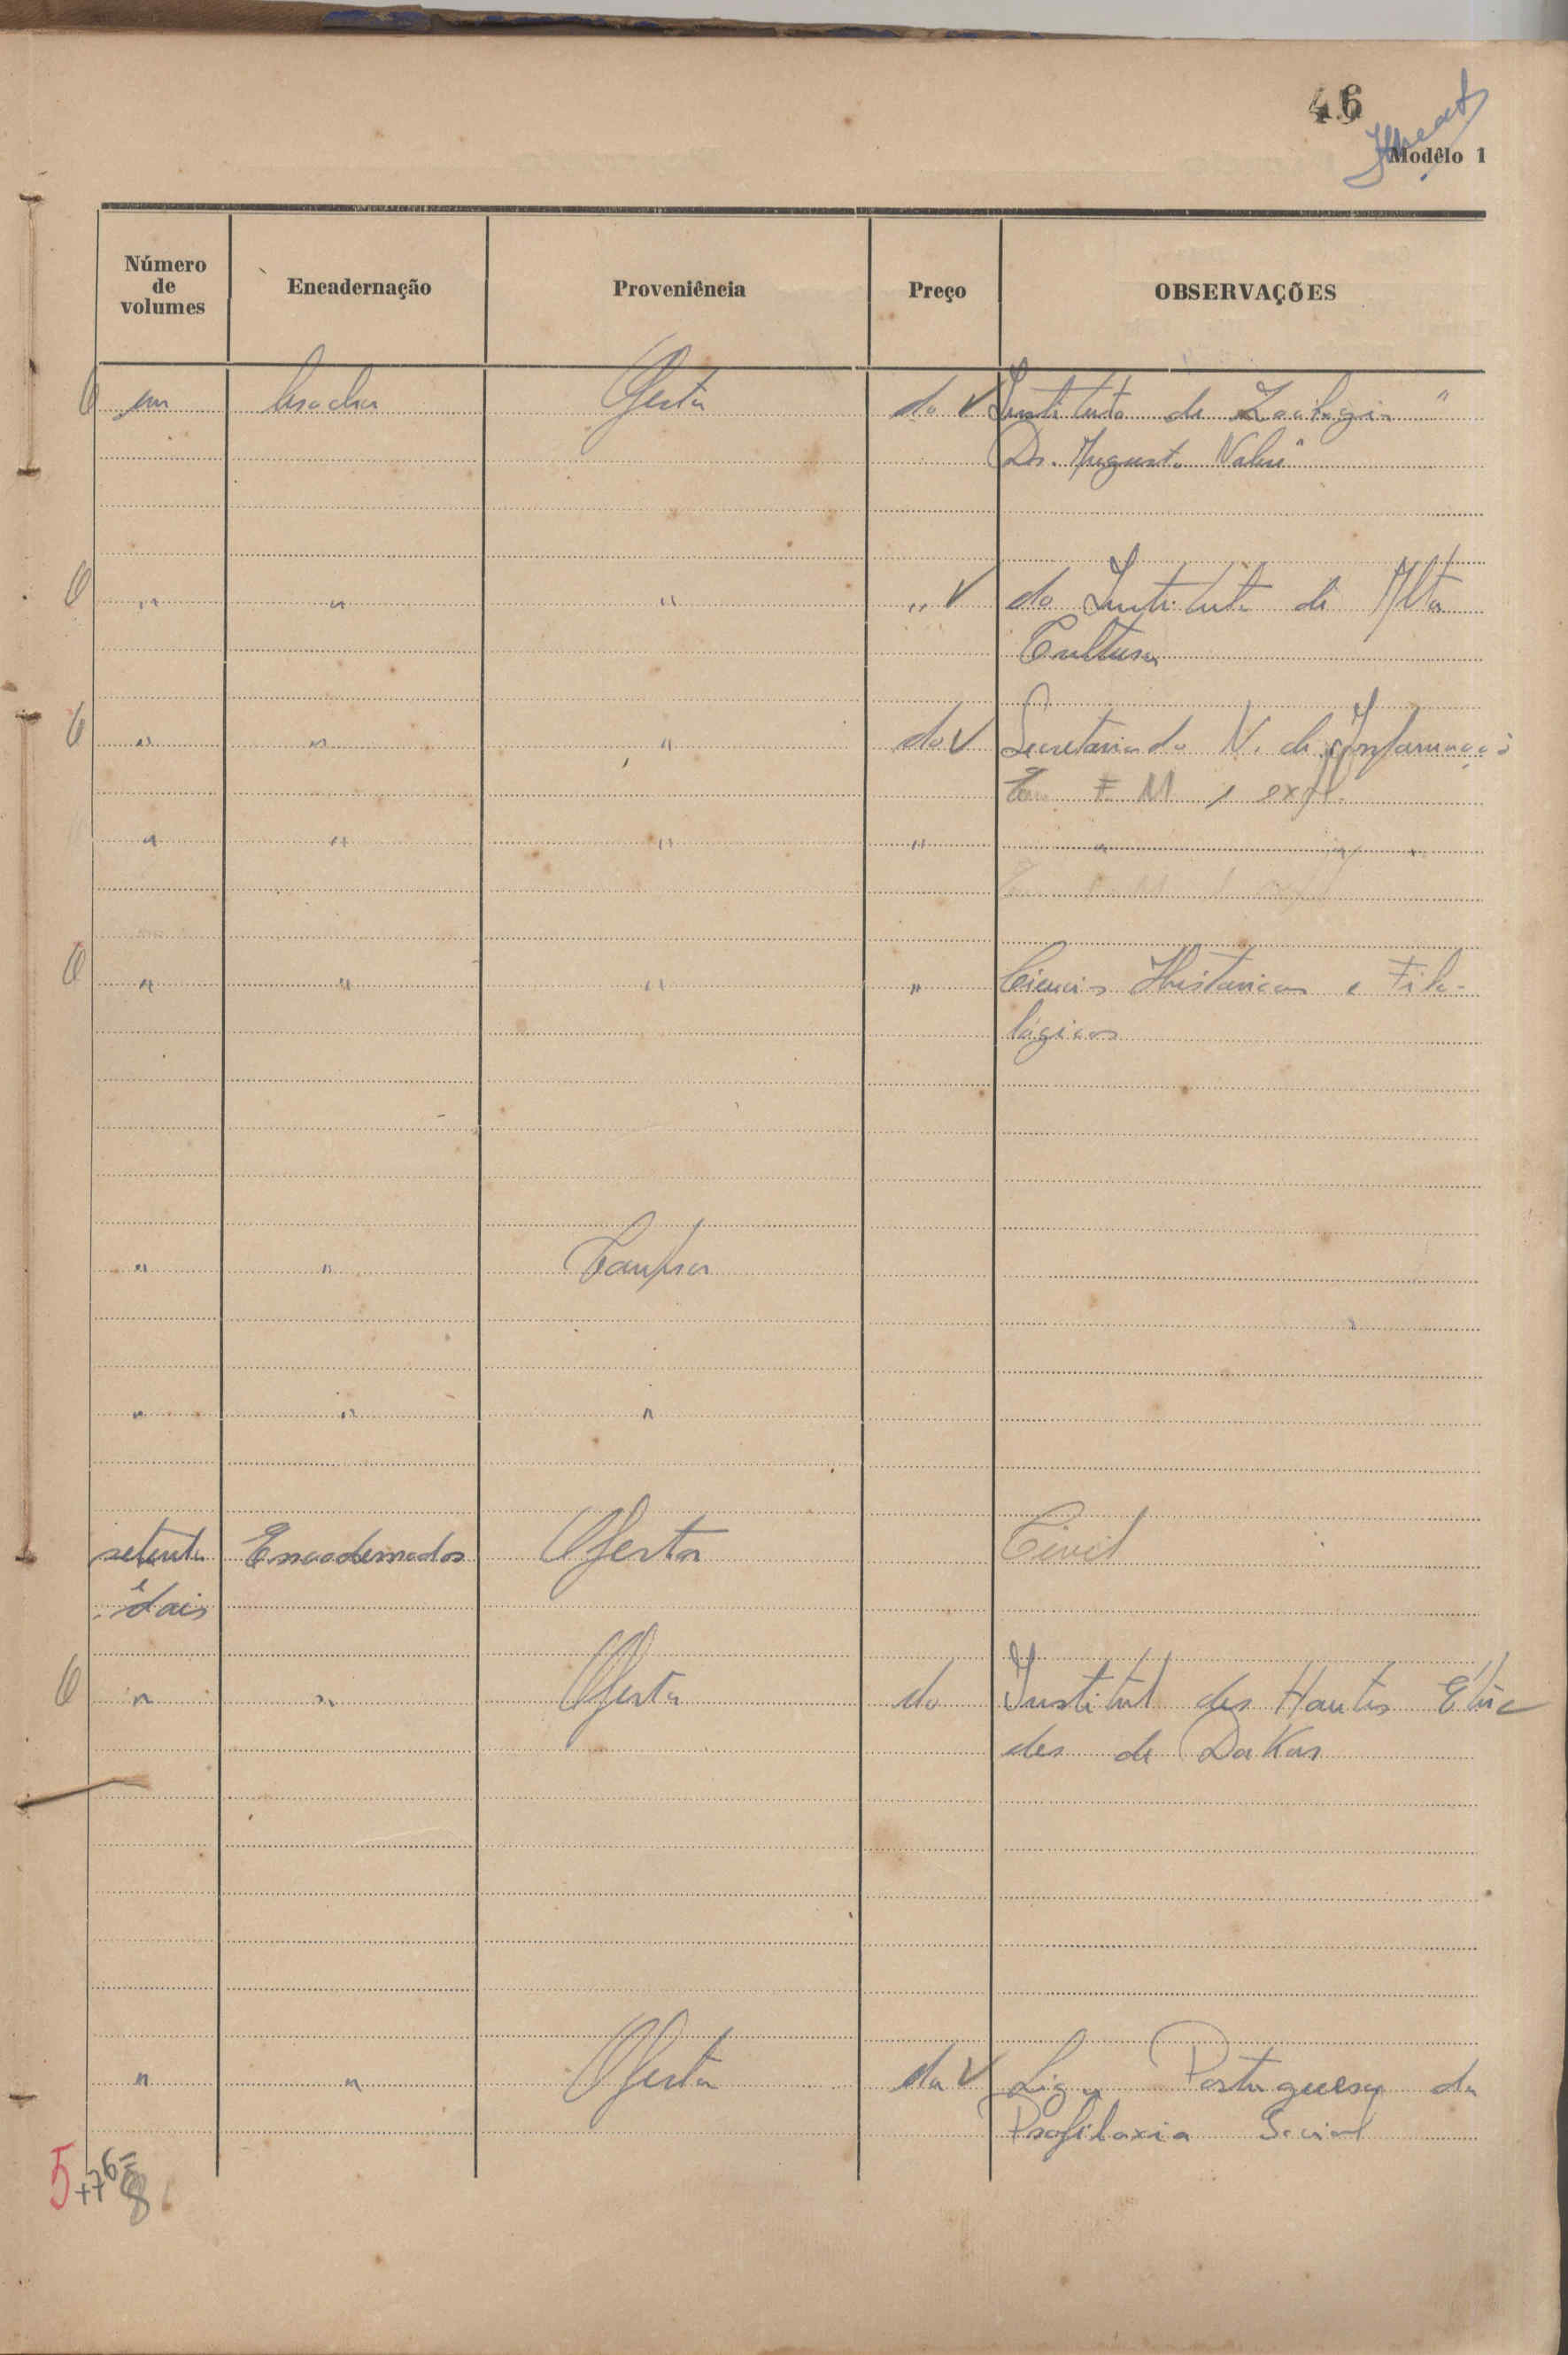 46
Modêlo 1
Número de volumes Encadernação Proveniência Preço OBSERVAÇÕES
um brochu Oferta do V Instituto de Zoologia "
Dr. Augusto Nobre"
" " " " V do Instituto de Alta
Cultura
" " " do V Secretariado N. de Informação
F. M 1 exp.
" " " " " "
" " " " Ciencias Historicas e Filo-
lógicas
" " Compra
" " "
setenta Encadernados Oferta Civil
e dois
" " Oferta do Institut des Hautes Etu
des de Dakar
" " Oferta da V Liga Portuguesa da
Profilaxia Social
5+76=
8